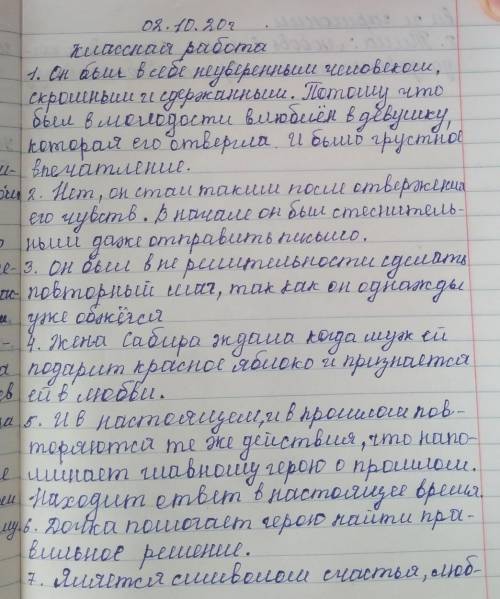 02.10.20г.
классная работа
1. Он был в себе неуверенным человеком,
скромным и сдержанным. Потому что
был в молодости влюблён в девушку,
которая его отвергла. И было грустное
впечатление.
2. Нет, он стал таким после отвержения
его чувств. В начале он был стеснитель-
ным даже отправить письмо.
3. Он был в не решительности сделать
повторный шаг, так как он однажды
уже обжёгся
4. Жена Сабира ждала когда муж ей
подарит красное яблоко и признается
ей в любви.
5. И в настоящем, и в прошлом пов-
торяются те же действия, что напо-
минает главному герою о прошлом.
Находит ответ в настоящее время.
6. Дочка помогает герою найти пра-
вильное решение.
7. Является символом счастья, люб-